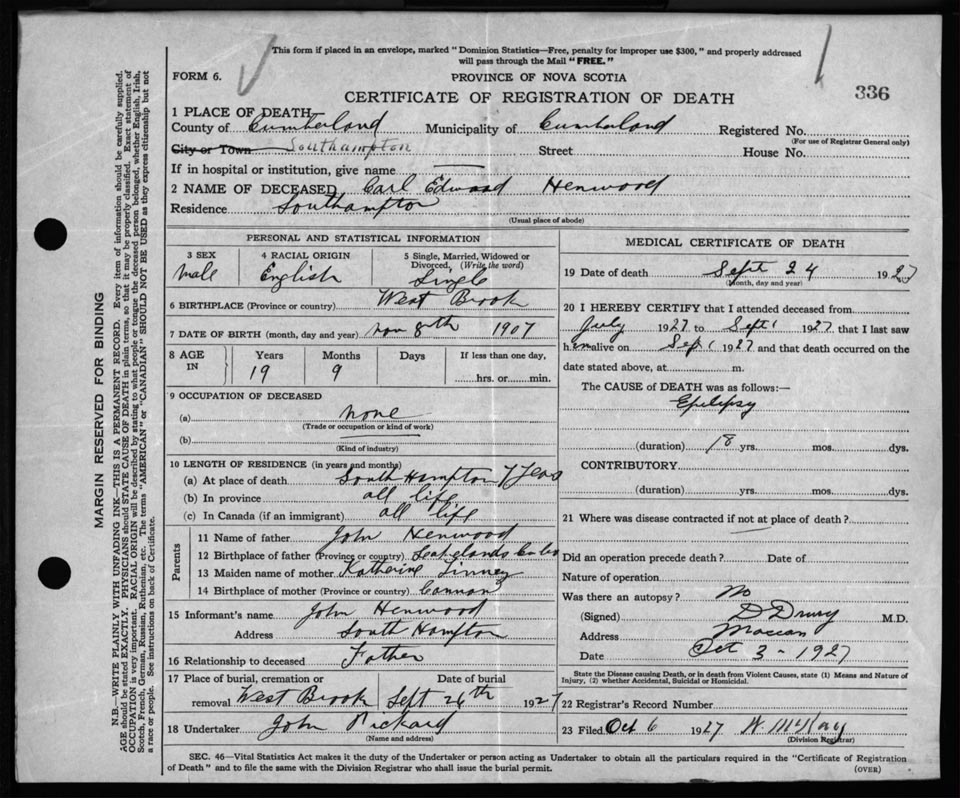 This form if placed in an envelope, marked "Dominion Statistics—Free, penalty for improper use $300," and properly addressed
will pass through the Mail "FREE."
FORM 6.
PROVINCE OF NOVA SCOTIA
CERTIFICATE OF REGISTRATION OF DEATH
336
1 PLACE OF DEATH
County of Cumberland Municipality of Cumberland Registered No.
(For use of Registrar General only)
City or Town Southampton Street House No.
If in hospital or institution, give name
2 NAME OF DECEASED Carl Edward Henwood
Residence Southampton
(Usual place of abode)
PERSONAL AND STATISTICAL INFORMATION
3 SEX 4 RACIAL ORIGIN 5 Single, Married, Widowed or
Divorced, (Write the word)
Male English Single
6 BIRTHPLACE (Province or country) West Brook
7 DATE OF BIRTH (month, day and year) Nov 8th 1907
8 AGE IN Years Months Days If less than one day,
19 9 hrs. or min.
9 OCCUPATION OF DECEASED
(a) none
(Trade or occupation or kind of work)
(b)
(Kind of industry)
10 LENGTH OF RESIDENCE (in years and months)
(a) At place of death South Hampton 7 Years
(b) In province all life
(c) In Canada (if an immigrant) all life
Parents
11 Name of father John Henwood
12 Birthplace of father (Province or country)
13 Maiden name of mother Katherine
14 Birthplace of mother (Province or country)
15 Informant's name John Henwood
Address South Hampton
16 Relationship to deceased Father
17 Place of burial, cremation or Date of burial
removal West Brook Sept 26th 1927
18 Undertaker John Rickard
(Name and address)
MEDICAL CERTIFICATE OF DEATH
19 Date of death Sept 24 1927
(Month, day and year)
20 I HEREBY CERTIFY that I attended deceased from
July 1927 to Sept 1 1927 that I last saw
him alive on Sept 1 1927 and that death occurred on the
date stated above, at m.
The CAUSE of DEATH was as follows:—
Epilepsy
(duration) 18 yrs. mos. dys.
CONTRIBUTORY
(duration) yrs. mos. dys.
21 Where was disease contracted if not at place of death?
Did an operation precede death? Date of
Nature of operation
Was there an autopsy? No
(Signed) D Drury M.D.
Address Maccan
Date Oct 3 - 1927
State the Disease causing Death, or in death from Violent Causes, state (1) Means and Nature of
Injury, (2) whether Accidental, Suicidal or Homicidal.
22 Registrar's Record Number
23 Filed Oct 6 1927
(Division Registrar)
SEC. 46—Vital Statistics Act makes it the duty of the Undertaker or person acting as Undertaker to obtain all the particulars required in the "Certificate of Registration
of Death" and to file the same with the Division Registrar who shall issue the burial permit.
(OVER)
MARGIN RESERVED FOR BINDING
N.B.—WRITE PLAINLY WITH UNFADING INK—THIS IS A PERMANENT RECORD. Every item of information should be carefully supplied.
AGE should be stated EXACTLY. PHYSICIANS should STATE CAUSE OF DEATH in plain terms, so that it may be properly classified. Exact statement of
OCCUPATION is very important. RACIAL ORIGIN will be described by stating to what people or tongue the deceased person belonged, whether English, Irish,
Scotch, French, German, Russian, Ruthenian, etc. The terms "AMERICAN" or "CANADIAN" SHOULD NOT BE USED as they express citizenship but not
a race or people. See instructions on back of Certificate.